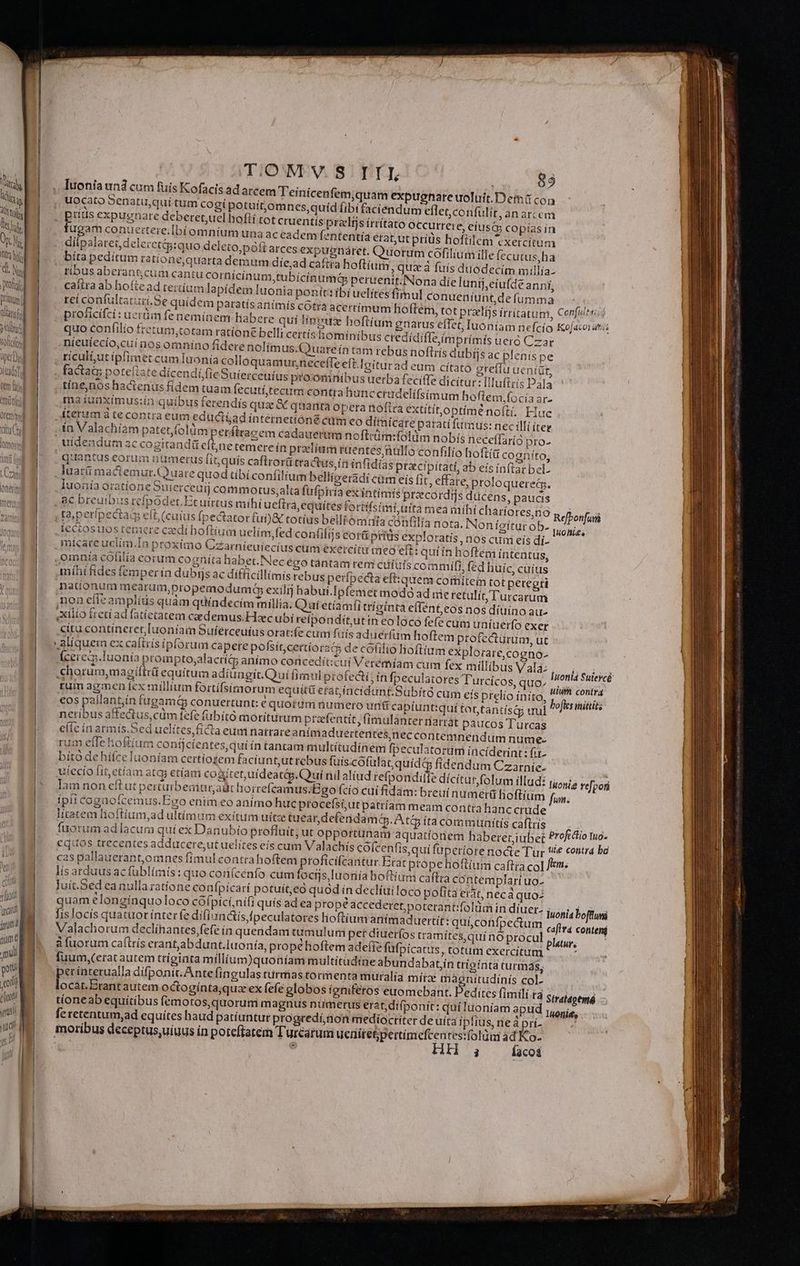 TOMVS III. 85
Iuonia unà cum suis Kosacis ad arcem Teinicensem, quam expugnare uoluit. Demũ con
uocato Senatu, qui tum cogi potuit, omnes, quid sibi faciendum esset, consulit, an arcem
priùs expugnare deberet, uel hosti tot cruentis prælijs irritato occurrere, eiusq; copias in
fugam conuertere. Ibi omnium una ac eadem sententia erat, ut priùs hostilem exercitum
dissipalaret, deleretq;: quo deleto, póst arces expugnaret. Quorum cõsilium ille secutus, ha
bita peditum ratione, quarta demum die, ad castra hostium, quæ à suis duodecim millia-
ribus aberant, cum cantu cornicinum, tubicinumq; peruenit. Nona die Iunij, eiusdẽ anni,
castra ab hoste ad tertium lapidem Iuonia ponit: ibi uelites simul conueniunt, de summa
rei consultaturi. Se quidem paratis animis cõtra acerrimum hostem, tot prælijs irritatum,
proficisci: uerùm se neminem habere qui linguæ hostium gnarus esset, Iuoniam nescio
Kosacorumis
quo consilio fretum, totam rationẽ belli certis hominibus credidisse, imprimis uerò Czar
nieuiecio, cui nos omnino fidere nolimus. Quare in tam rebus nostris dubijs ac plenis pe
riculi, ut ipsimet cum Iuonia colloquamur, necesse est. Igitur ad eum citato gressu ueniũt,
factaq; potestate dicendi, sic Suierceuius pro omnibus uerba fecisse dicitur: Illustris Pala
tine, nos hactenus fidem tuam secuti, tecum contra hunc crudelissimum hostem, socia ar-
ma iunximus: in quibus ferendis quæ & quanta opera nostra extitit, optimè nosti. Huc
iterum à te contra eum educti, ad internetionẽ cum eo dimicare parati sumus: nec illi iter
in Valachiam patet, solùm per stragem cadauerum nostrûm: solùm nobis necessariò pro-
uidendum ac cogitandũ est, ne temere in prælium ruentes, nullo consilio hostiũ cognito,
quantus eorum numerus sit, quis castrorũ tractus, in insidias præcipitati, ab eis instar bel-
luarũ mactemur. Quare quod tibi consilium belligerãdi cum eis sit, effare, proloquereq;.
Iuonia oratione Suierceuij commotus, alta suspiria ex intimis præcordijs ducens, paucis
ac breuibus respõdet. Et uirtus mihi uestra, equites fortissimi, uita mea mihi chariores, no
Responsum
ta, perspectaq; est, (cuius spectator fui) & totius belli omnia consilia nota. Non igitur ob-
Iuoniæ.
iectos uos temere cædi hostium uelim, sed consilijs eorũ priùs exploratis, nos cum eis di-
micare uelim. In proximo Czarnieuiecius cum exercitu meo est: qui in hostem intentus,
omnia cõsilia eorum cognita habet. Nec ego tantam rem cuiuis commisi, sed huic, cuius
mihi fides semper in dubijs ac difficillimis rebus perspecta est: quem comitem tot peregri
nationum mearum, propemodumq; exilij habui. Ipsemet modò ad me retulit, Turcarum
non esse amplius quàm quindecim millia. Qui etiamsi triginta essent, eos nos diuino au-
xilio freti ad satietatem cædemus. Hæc ubi respondit, ut in eo loco sese cum uniuerso exer
citu contineret, Iuoniam Suierceuius orat: se cum suis aduersum hostem profecturum, ut
aliquem ex castris ipsorum capere possit, certioraq; de cõsilio hostium explorare, cogno-
scereq;. Iuonia prompto, alacriq; animo concedit: cui Veremiam cum sex millibus Vala-
Iuonia Suiercè
chorum, magistrũ equitum adiungit. Qui simul profecti, in speculatores Turcicos, quo-
uium contra
rum agmen sex millium fortissimorum equitũ erat, incidunt. Subitò cum eis prelio inito,
hostes mittit.
eos pallant, in fugamq; conuertunt: è quorum numero unũ capiunt: qui tot, tantisq; uul
neribus affectus, cùm sese subitò moriturum præsentit, simulanter narrat paucos Turcas
esse in armis. Sed uelites, ficta eum narrare animaduertentes, nec contemnendum nume-
rum esse hostium conijcientes, qui in tantam multitudinem speculatorum inciderint: su-
bitò de hisce Iuoniam certiorem faciunt, ut rebus suis cõsulat, quidq; fidendum Czarnie-
uiecio sit, etiam atq; etiam cogitet, uideatq;. Qui nil aliud respondisse dicitur, solum illud:
Iuoniæ respon
Iam non est ut perturbemur, aut horrescamus. Ego scio cui fidam: breui numerũ hostium
sum.
ipsi cognoscemus. Ego enim eo animo huc processi, ut patriam meam contra hanc crude
litatem hostium, ad ultimum exitum uitæ tuear, defendamq;. Atq; ita communitis castris
suorum ad lacum qui ex Danubio profluit, ut opportunam aquationem haberet, iubet
Profectio Iuo-
equos trecentes adducere, ut uelites eis cum Valachis cõscensis, qui superiore nocte Tur
niæ contra ho
cas pallauerant, omnes simul contra hostem proficiscantur. Erat prope hostium castra col
stem.
lis arduus ac sublimis: quo conscenso cum socijs, Iuonia hostium castra contemplari uo-
luit. Sed ea nulla ratione conspicari potuit, eò quòd in decliui loco posita erãt, nec à quo-
quam è longinquo loco cõspici, nisi quis ad ea propè accederet, poterant: solùm in diuer-
Iuonia hostium
sis locis quatuor inter se disiunctis, speculatores hostium animaduertit: qui, conspectum
castra contem
Valachorum declinantes, sese in quendam tumulum per diuersos tramites, qui nõ procul
platur.
à suorum castris erant, abdunt. Iuonia, propè hostem adesse suspicatus, totum exercitum
suum, (erat autem triginta millium) quoniam multitudine abundabat, in triginta turmas,
per interualla disponit. Ante singulas turmas tormenta muralia miræ magnitudinis col-
locat. Erant autem octoginta, quæ ex sese globos igniferos euomebant. Pedites simili ra
Stratagemà
tione ab equitibus semotos, quorum magnus numerus erat, disponit: qui Iuoniam apud
Iuoniæ.
se retentum, ad equites haud patiuntur progredi, non mediocriter de uita ipsius, ne à pri-
moribus deceptus, uiuus in potestatem Turcarum ueniret, pertimescentes: solùm ad Ko-
HH 3 sacos